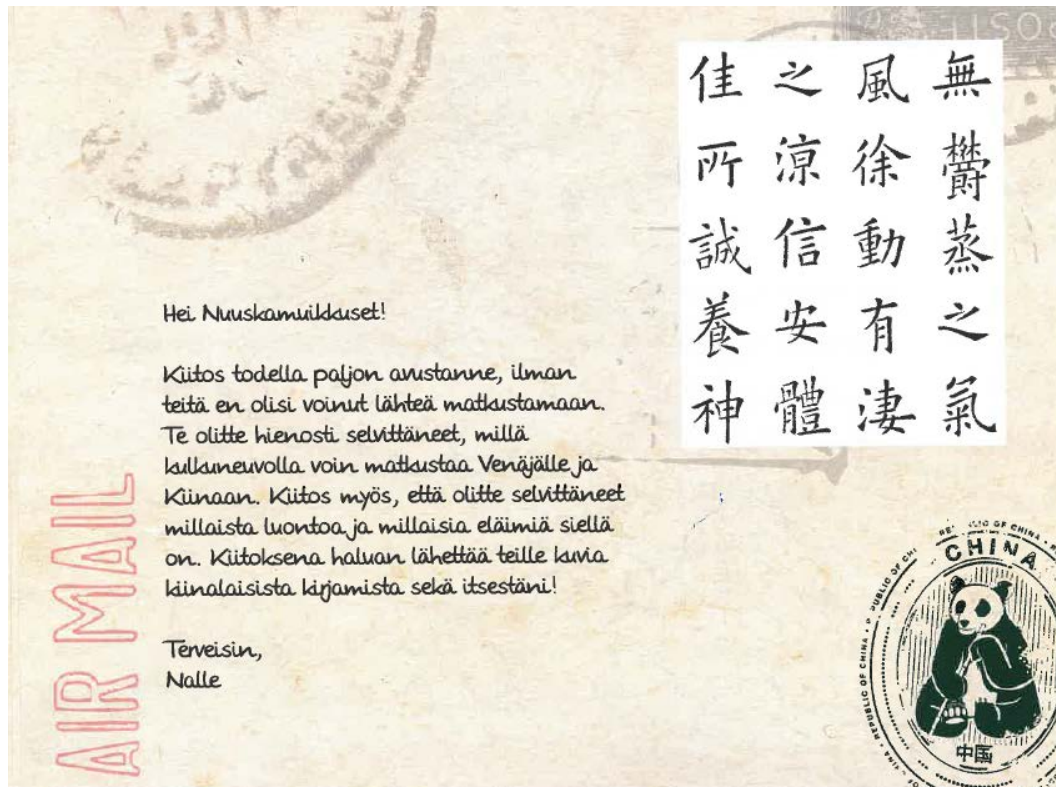 無欝蒸之氣
風徐動有淒
之涼信安體
佳所誠養神
Hei Nuuskamuikkuset!
Kiitos todella paljon avustanne, ilman
teitä en olisi voinut lähteä matkustamaan.
Te olitte hienosti selvittäneet, millä
kulkuneuvolla voin matkustaa Venäjälle ja
Kiinaan. Kiitos myös, että olitte selvittäneet
millaista luontoa ja millaisia eläimiä siellä
on. Kiitoksena haluan lähettää teille kuvia
kiinalaisista kirjamista sekä itsestäni!
Terveisin,
Nalle
AIR MAIL
REPUBLIC OF CHINA
CHINA
中国